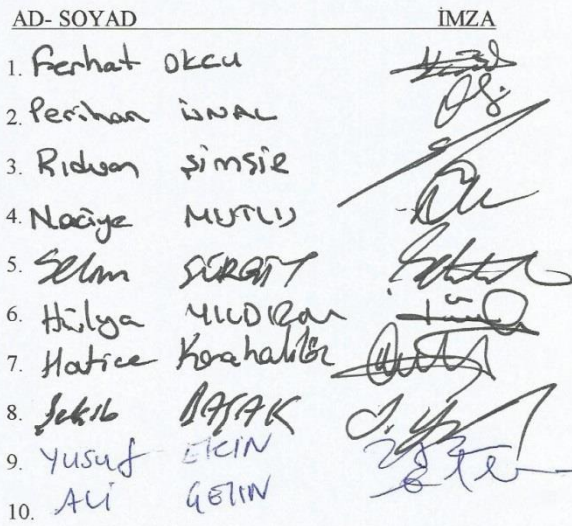 AD- SOYAD İMZA
1. Ferhat OKCU
2. Perihan ÜNAL
3. Rıdvan ŞİMŞİR
4. Naciye MUTLU
5. Selim SÜRGİT
6. Hülya YILDIRIM
7. Hatice Karahaliller
8. Şekib BAŞAK
9. YUSUF EKİN
10. ALİ ÇETİN